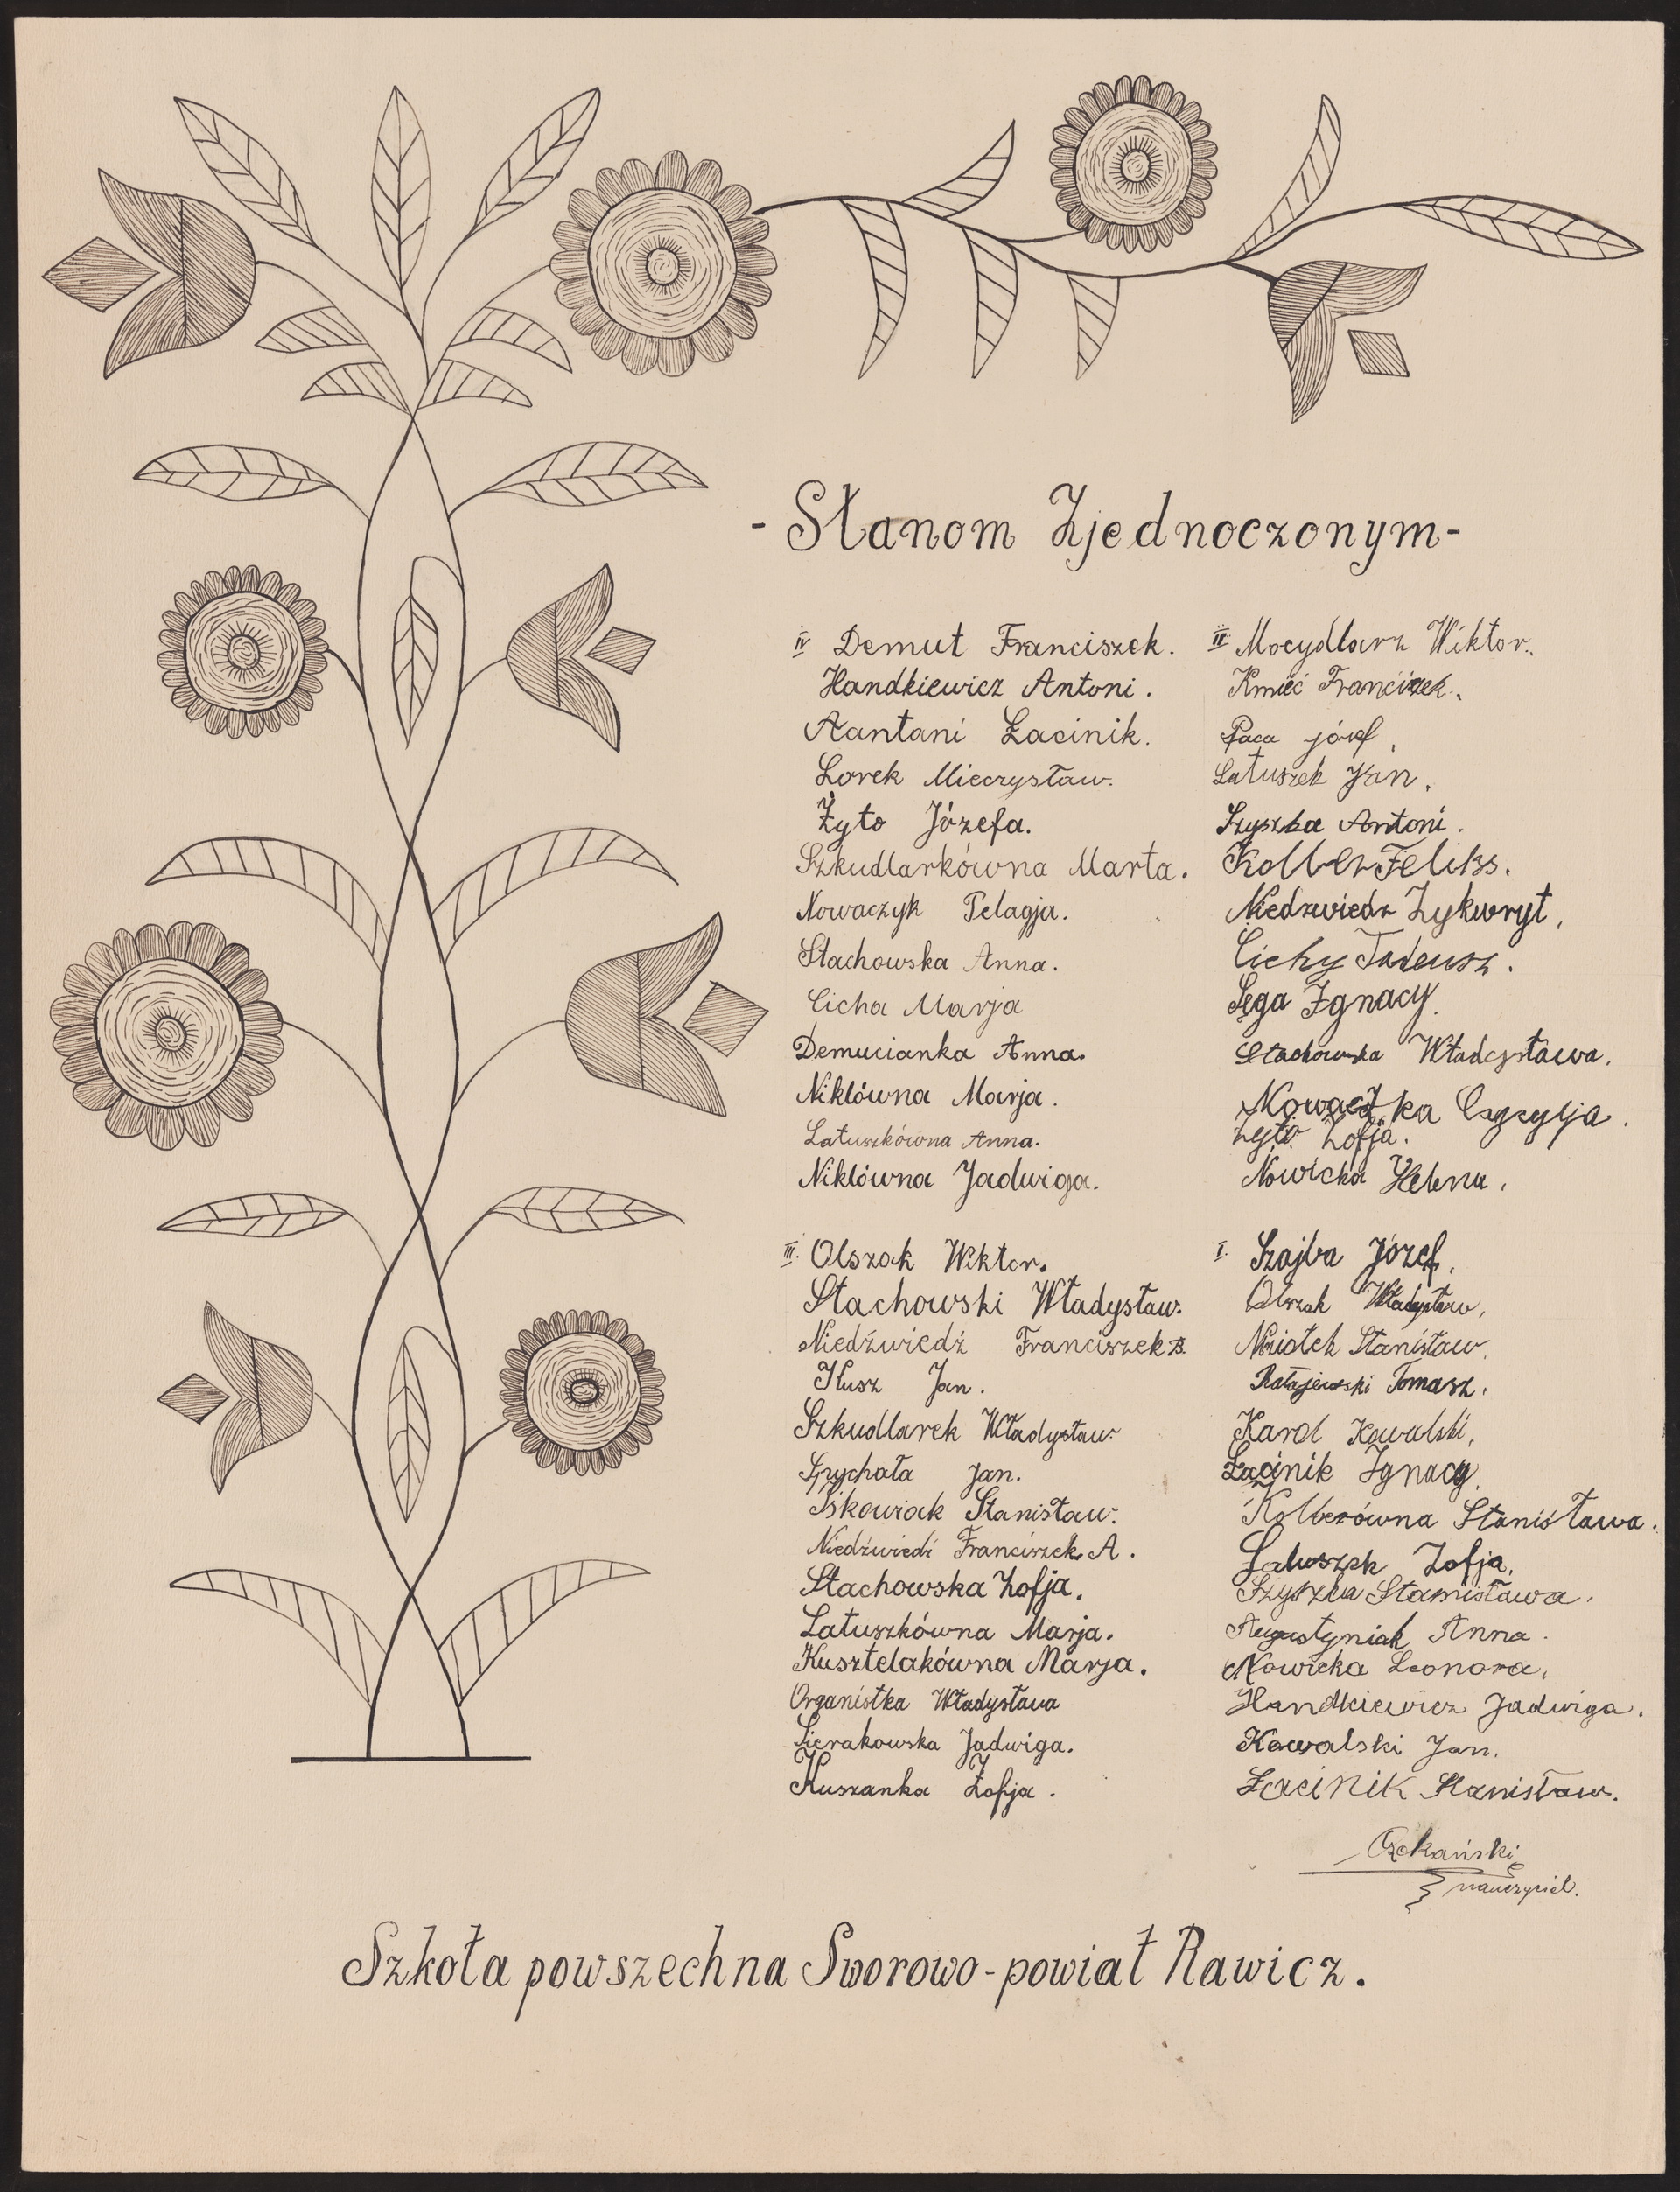 - Stanom Zjednoczonym -
IV Demut Franciszek.
Handkiewicz Antoni.
Łacinik.
Lorek Mieczysław.
Żyto Józefa.
Szkudlarkówna Marta.
Nowaczyk Pelagja.
Stachowska Anna.
Cicha Marja
Demucianka Anna.
Niklówna Marja.
Latuszkówna Anna.
Niklówna Jadwiga.
III. Olszak Wiktor.
Stachowski Władysław.
Niedźwiedź Franciszek B.
Ilusz Jan.
Szkudlarek Władysław
Spychała Jan.
Iskowiak Stanisław.
Niedźwiedź Franciszek A.
Stachowska Zofja.
Latuszkówna Marja.
Kusztelakówna Marja.
Organistka Władysława
Sierakowska Jadwiga.
Zofja.
II Mocydlarz Wiktor.
Kmieć Franciszek.
Paca józef,
Latuszek Jan,
Szyszka Antoni.
Kolber Feliks.
Niedzwiedz Zykwryt,
Cichy Tadeusz.
Sęga Ignacy.
Stachowska Władysława.
Nowaczka Czecylja.
Żyto Zofja.
Nowicka Helena,
I. Szajba Józef,
Olszak Władysław,
Stanisław,
Ratajewski Tomasz.
Karol Kowalski,
Łacinik Ignacy.
Kolberówna Stanisława.
Latuszek Zofja,
Szyszka Stanisława.
Augustyniak Anna.
Nowicka Leonora,
Handkiewicz Jadwiga.
Kowalski Jan.
Łacinik Stanisław.
Czekański
nauczyciel.
Szkoła powszechna Sworowo - powiat Rawicz.